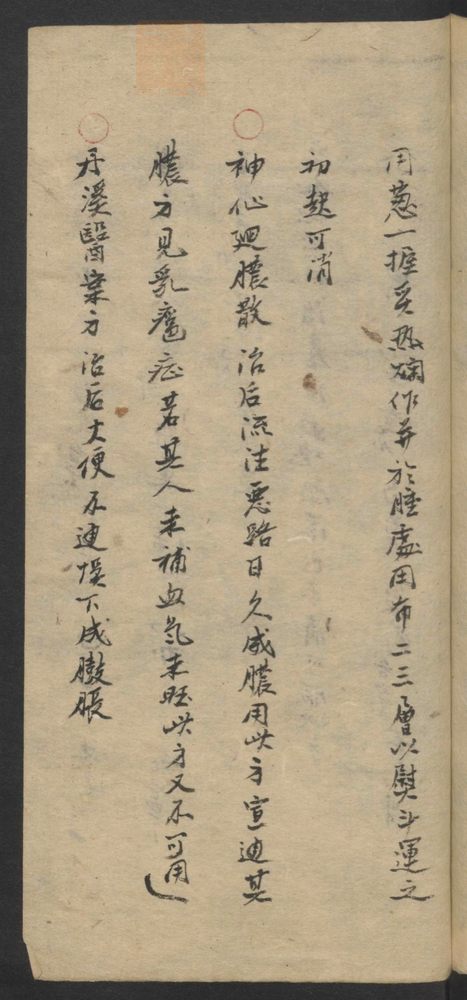 用葱一握炙热爛作并於腫處用布二三層以熨斗運之
初起可消
○神仙廻膿散 治后流注悪路日久成膿用此方宣迪其
膿方見乳癰症若其人未補血氣未旺此方又不可用
○丹溪醫案方治后大便不迪悞下成臌脹